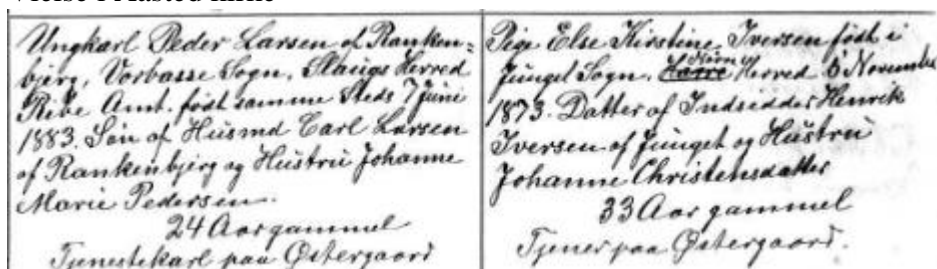 Ungkarl Peder Larsen af Ranken=
bjerg, Vorbasse Sogn, Slaugs Herred
Ribe Amt. født samme Steds 7 Juni
1883. Søn af Husmd Carl Larsen
af Rankenbjerg og Hustru Johanne
Marie Pedersen.
24 Aar gammel
Tjenestekarl paa Østergaard
Pige Else Kirstine Iversen født i
Junget Sogn, Nørre Herred 5 November
1873. Datter af Indsidder Henrik
Iversen af Junget og Hustru
Johanne Christensdatter
33 Aar gammel
Tjener paa Østergaard.